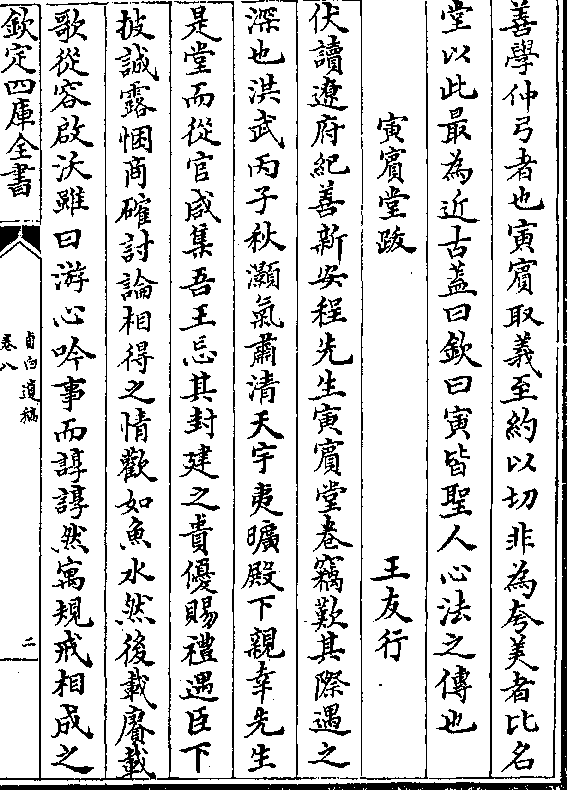 善學仲弓者也寅賔取義至約以切非為夸美者比名
堂以此最為近古葢曰欽曰寅皆聖人心法之傳也
寅賔堂跋
王友行
伏讀遼府紀善新安程先生寅賔堂巻竊歎其際遇之
深也洪武丙子秋灝氣肅清天宇夷曠殿下親幸先生
是堂而從官咸集吾王忘其封建之貴優賜禮遇臣下
披誠露悃商確討論相得之情歡如魚水然後載賡載
歌從容啟沃雖曰游心吟事而諄諄然寓規戒相成之
欽定四庫全書
貞白遺稿
卷八
二